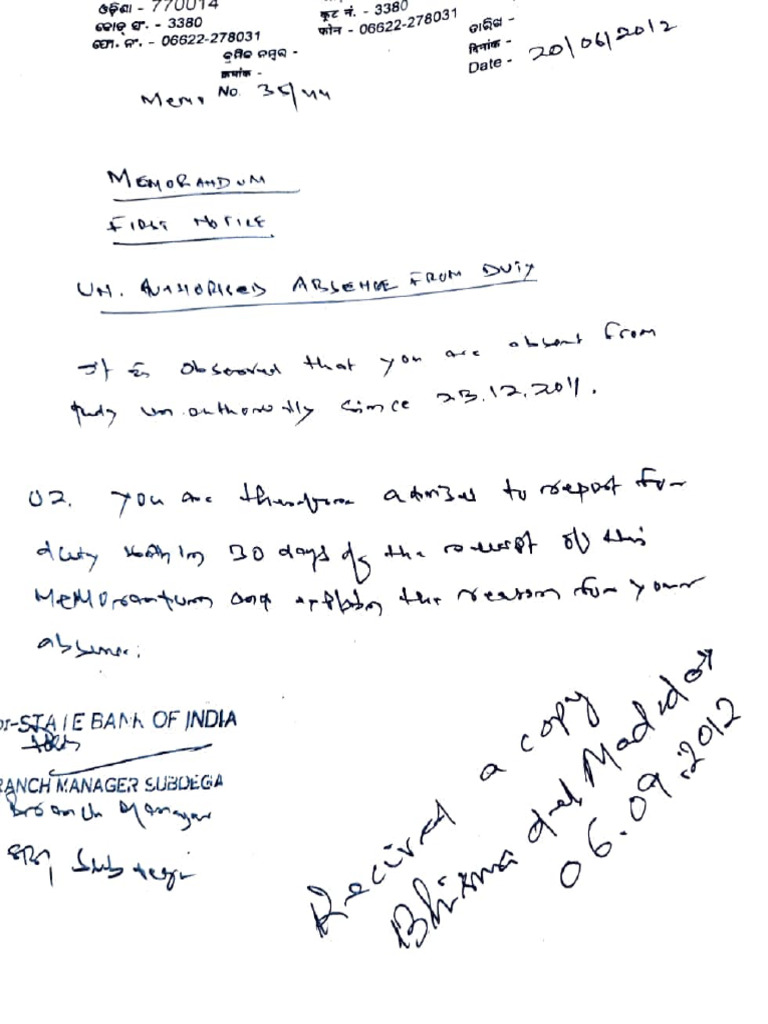 ଓଡ଼ିଶା - 770014
କୋଡ୍ ସଂ. - 3380
ଫୋ. ନଂ. - 06622-278031
कूट नं. - 3380
फोन - 06622-278031
କ୍ରମିକ ନମ୍ବର -
क्रमांक -
No. 35/44
ତାରିଖ -
दिनांक -
Date - 20/06/2012
MEMORANDUM
FIRST NOTICE
UN. AUTHORISED ABSENCE FROM DUTY
It is observed that you are absent from
duty un.authorisedly since 23.12.2011.
02. You are therefore advised to report for
duty within 30 days of the receipt of this
Memorandum and explain the reason for your
absence.
STATE BANK OF INDIA
RANCH MANAGER SUBDEGA
Branch Manager
Subdega
Recived a copy
Bhisma
06.09.2012